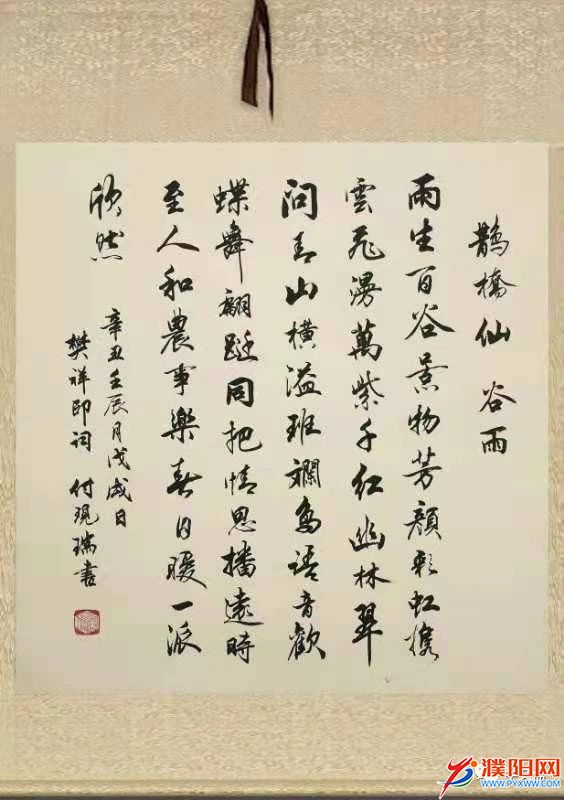 鵲橋仙 谷雨
雨生百谷景物芳顏彩虹攜
雲飛漫萬紫千紅幽林翠
問青山橫溢斑斕鳥語音歡
蝶舞翩跹同把情思播遠時
至人和農事樂春日暖一派
欣然
辛丑壬辰月戊戌日
樊祥印词 付現瑞書
濮阳网
WWW.PYXWW.COM